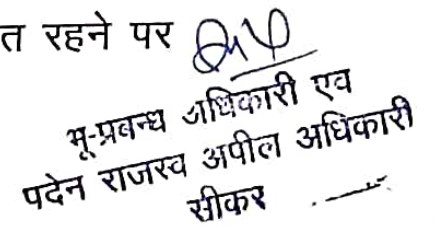 त रहने पर
भू-प्रबन्ध अधिकारी एव
पदेन राजस्व अपील अधिकारी
सीकर